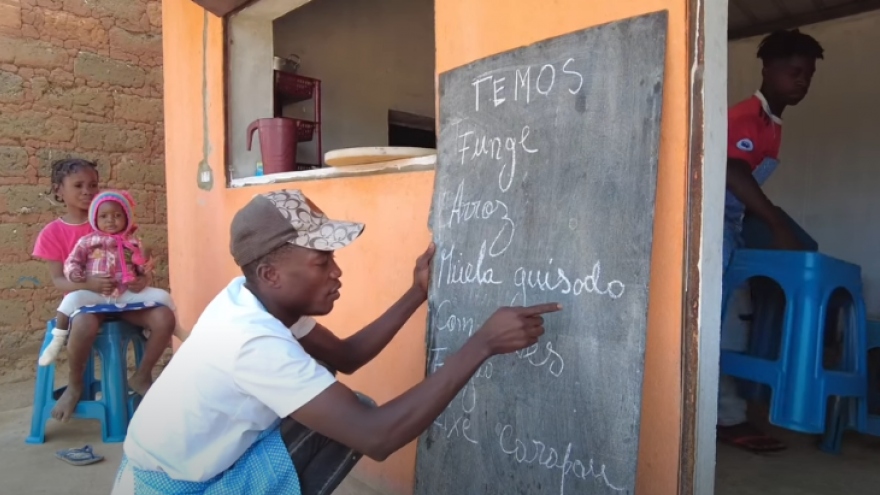 TEMOS
Funge
Arroz
Miuela guisodo
Com
Axe Carapau